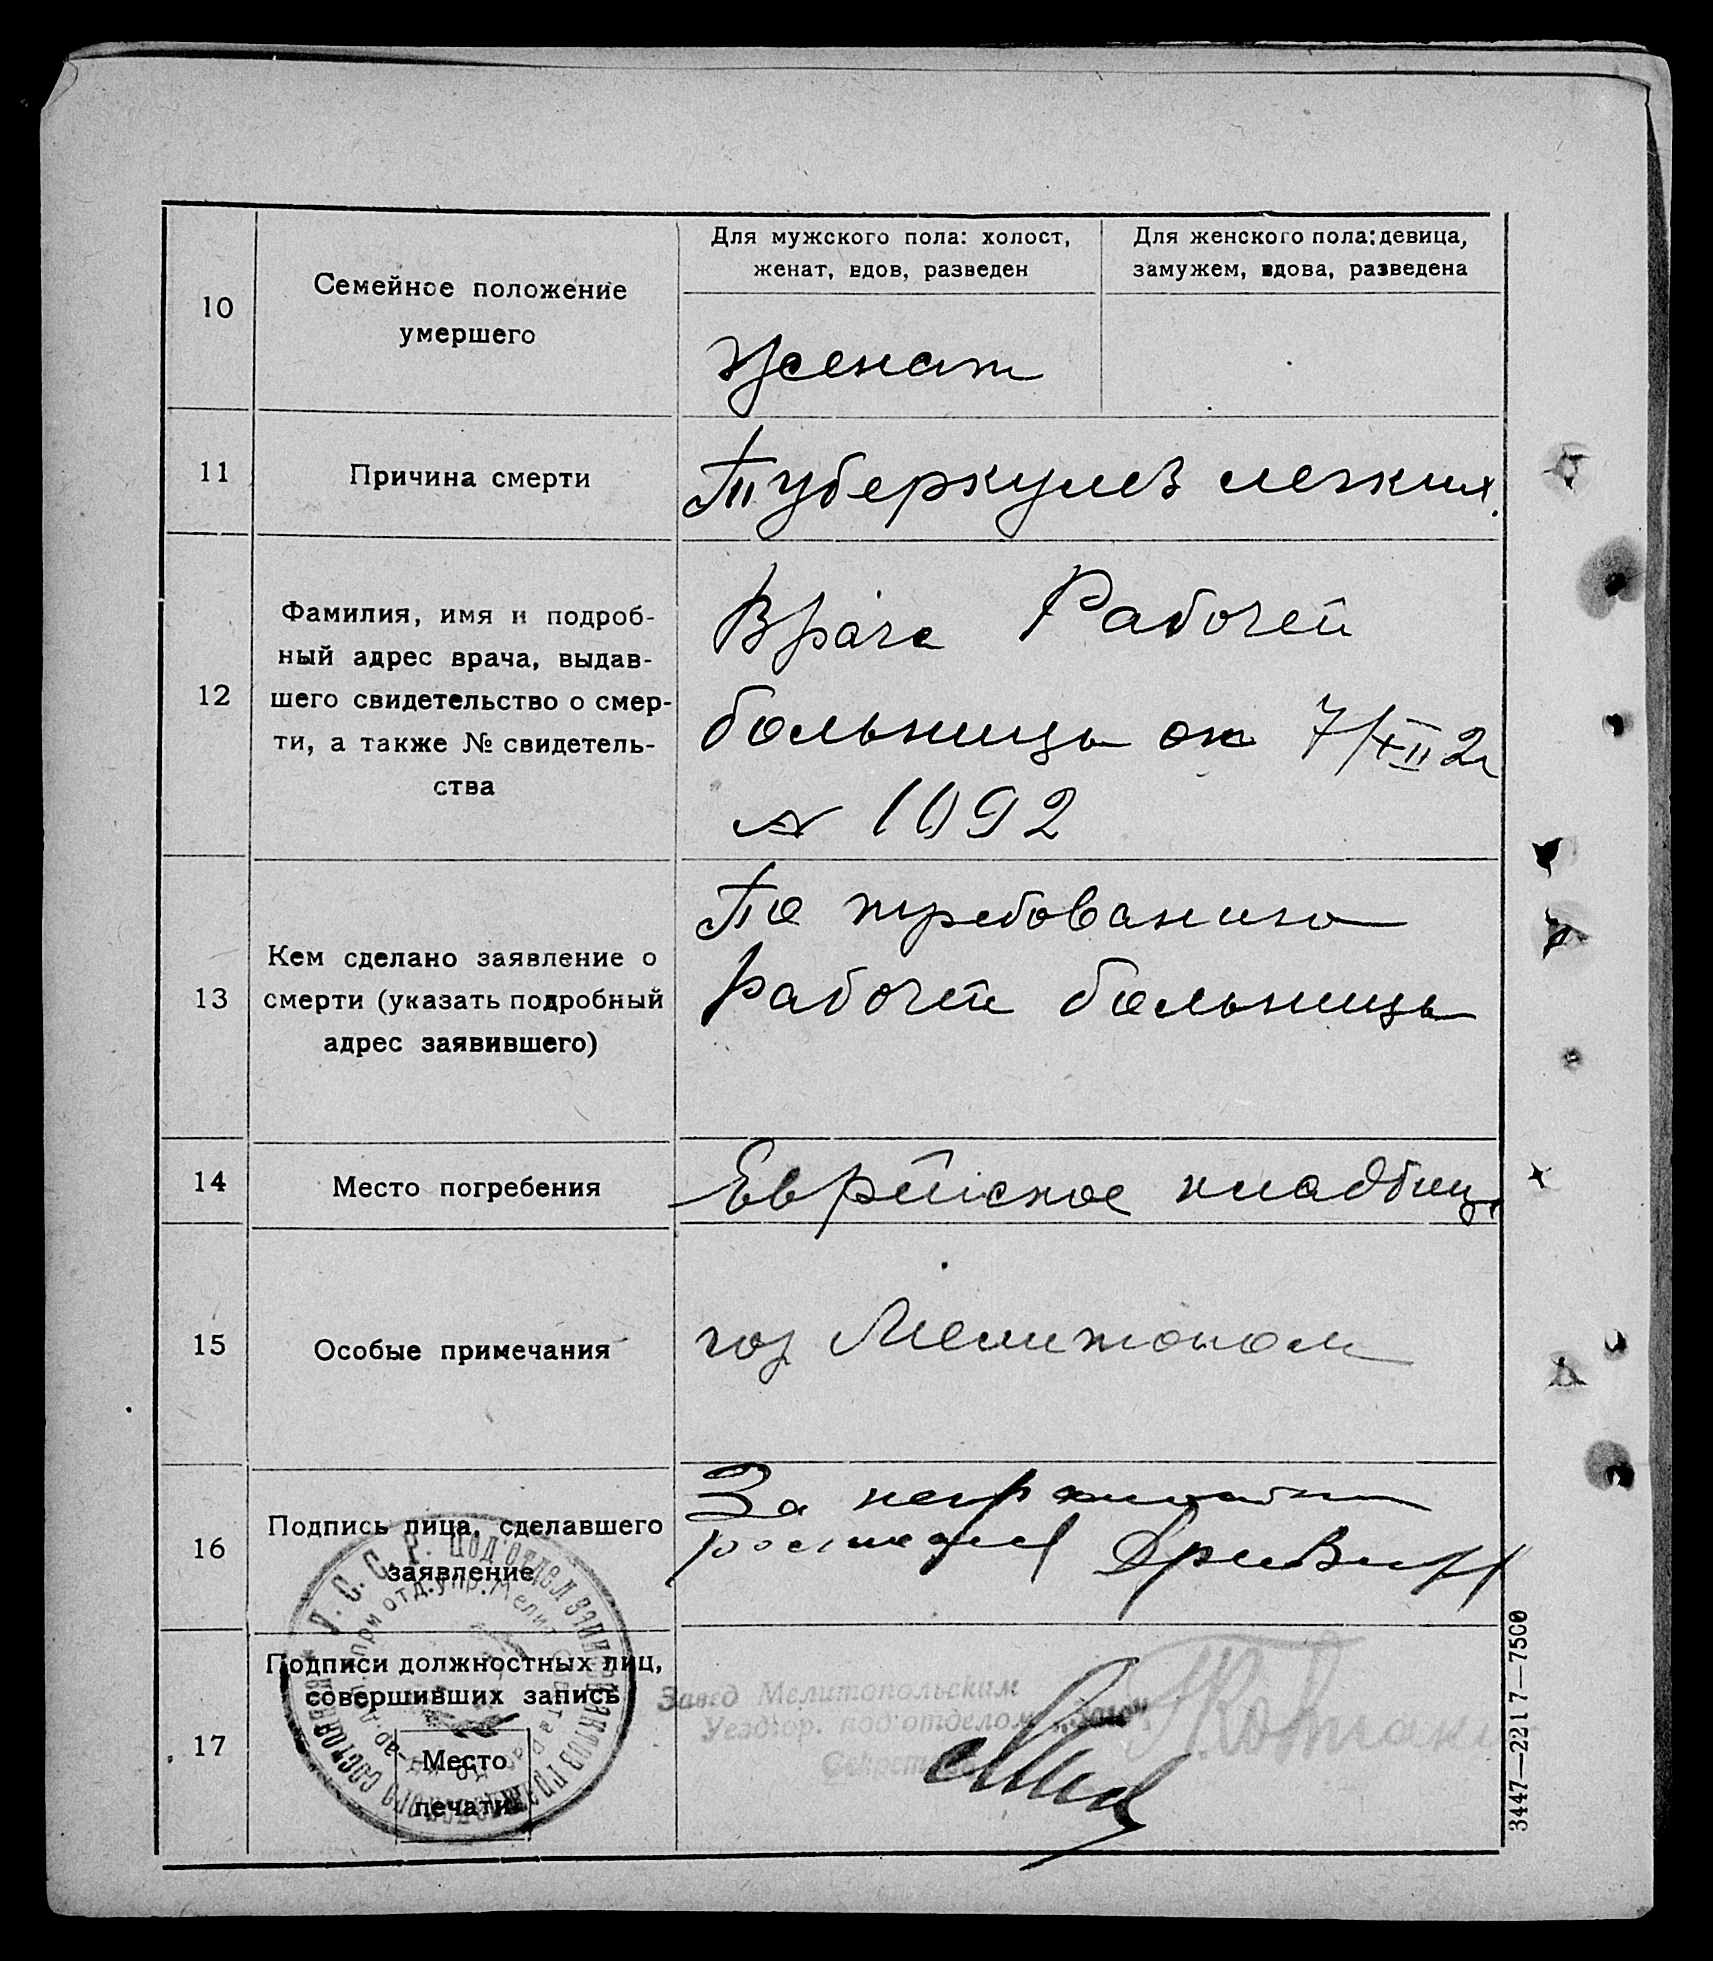 10
Семейное положение
умершего
Для мужского пола: холост,
женат, вдов, разведен
Для женского пола: девица,
замужем, вдова, разведена
женат
11
Причина смерти
Туберкулез легких.
12
Фамилия, имя и подроб-
ный адрес врача, выдав-
шего свидетельство о смер-
ти, а также № свидетель-
ства
Врача Рабочей
больницы от 7/XII 2
№ 1092
13
Кем сделано заявление о
смерти (указать подробный
адрес заявившего)
По требованию
рабочей больницы
14
Место погребения
Еврейское кладбищ.
15
Особые примечания
гор Мелитополь
16
Подпись лица, сделавшего
заявление
За
17
Подписи должностных лиц,
совершивших запись
Место
печати
У. С. С. Р. Под'отдел записи актов гражданского состояния
Завед Мелитопольским
Уездгор. под'отделом „Загс“
Секретарь
3447—2217—7500